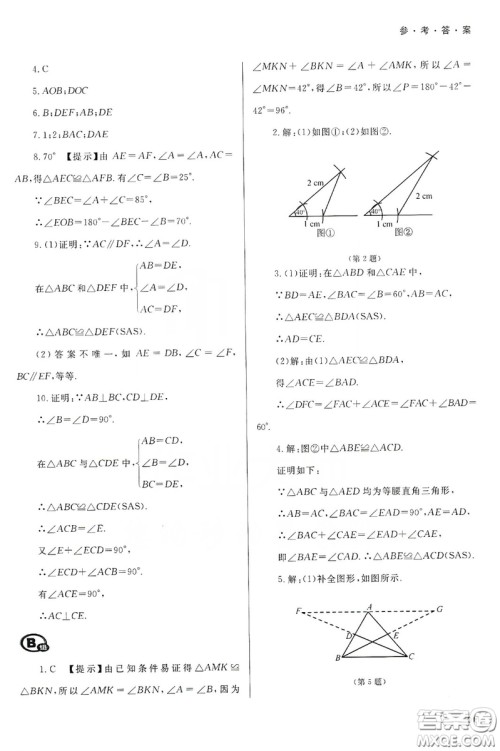 参·考·答·案
4. C
5. AOB;DOC
6. B;DEF;AB;DE;DEF
7. 1;2;BAC;DAE
8. 70° 【提示】由 AE=AF,∠A=∠A,AC=
AB,得△AEC≌△AFB. 有∠C=∠B=25°.
∵∠BEC=∠A+∠C=85°,
∴∠EOB=180°-∠BEC-∠B=70°.
9. (1)证明:∵AC∥DF,∴∠A=∠D.
在△ABC 和△DEF 中, { AB=DE,
∠A=∠D,
AC=DF,
∴△ABC≌△DEF(SAS).
(2) 答案不唯一,如 AE=DB,∠C=∠F,
BC∥EF,等等.
10. 证明:∵AB⊥BC,CD⊥DE,
∴∠B=∠D=90°.
在△ABC 与△CDE 中, { AB=CD,
∠B=∠D,
BC=DE,
∴△ABC≌△CDE(SAS).
∴∠ACB=∠E.
又∠E+∠ECD=90°,
∴∠ACB+∠ECD=90°.
有∠ACE=90°,
∴AC⊥CE.
B组
1. C 【提示】由已知条件易证得△AMK≌
△BKN,所以∠AMK=∠BKN,因为
∠MKN+∠BKN=∠A+∠AMK,所以∠A=
∠MKN=42°,得∠B=42°,∠P=180°-42°-
42°=96°.
2. 解:(1)如图①;(2)如图②.
2 cm
40°
1 cm
图①
2 cm
40°
1 cm
图②
(第 2 题)
3. (1)证明:在△ABD 和△CAE 中,
∵BD=AE,∠BAC=∠B=60°,AB=AC,
∴△AEC≌△BDA(SAS).
(2)解:由△AEC≌△BDA,
得∠ACE=∠BAD.
∴∠DFC=∠FAC+∠ACE=∠FAC+∠BAD=
60°.
4. 解:图②中△ABE≌△ACD.
证明如下:
∵△ABC 与△AED 均为等腰直角三角形,
∴AB=AC,AE=AD,∠BAC=∠EAD=90°,
∴∠BAC+∠CAE=∠EAD+∠CAE,
即∠BAE=∠CAD. ∴△ABE≌△ACD(SAS)
5. 解:(1)补全图形,如图所示.
F
A
G
D
E
B
C
(第 5 题)